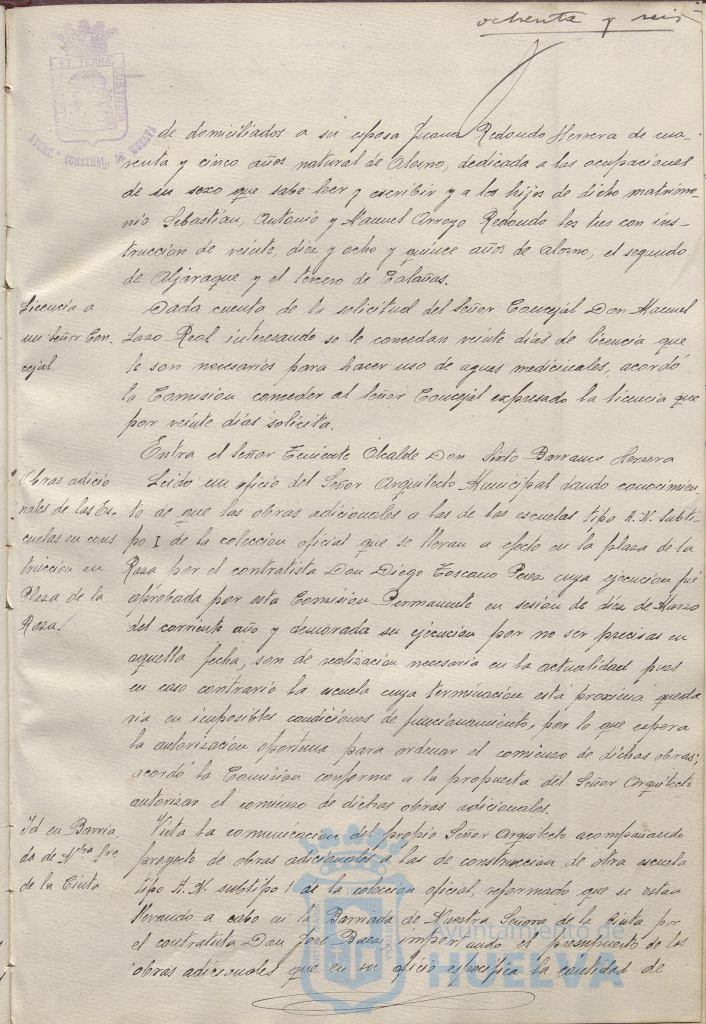 ochenta y seis
ET TERRÆ CUSTODIA
AYUNT.º CONSTNAL. DE HUELVA
de domiciliados a su esposa Juana Redondo Herrera de cua-
renta y cinco años natural de Alosno, dedicada a las ocupaciones
de su sexo que sabe leer y escribir y a los hijos de dicho matrimo-
nio Sebastian, Antonio y Manuel Arroyo Redondo los tres con ins-
trucción de veinte, diez y ocho y quince años de Alosno, el segundo
de Aljaraque y el tercero de Calañas.
Licencia a
un Señor Con-
cejal.
Dada cuenta de la solicitud del Señor Concejal Don Manuel
Lazo Real interesando se le concedan veinte días de licencia que
le son necesarios para hacer uso de aguas medicinales, acordó
la Comision conceder al Señor Concejal expresado la licencia que
por veinte días solicita.
Entra el Señor Teniente Alcalde Don Sixto Barranco Herrera
Obras adicio
nales de las Es-
cuelas en cons
trucción en
Plaza de la
Raza.
Leido un oficio del Señor Arquitecto Municipal dando conocimien-
to de que las obras adicionales a las de las escuelas tipo A.N. subti-
po I de la coleccion oficial que se llevan a efecto en la plaza de la
Raza por el contratista Don Diego Toscano Perez cuya ejecucion fué
aprobada por esta Comision Permanente en sesion de diez de Marzo
del corriente año y demorada su ejecucion por no ser precisas en
aquella fecha, son de realizacion necesaria en la actualidad pues
en caso contrario la escuela cuya terminacion está proxima queda
ria en imposibles condiciones de funcionamiento, por lo que espera
la autorizacion oportuna para ordenar el comienzo de dichas obras;
acordó la Comision conforme a la propuesta del Señor Arquitecto
autorizar el comienzo de dichas obras adicionales.
Id en Barria
da de Ntra Sra
de la Cinta
Vista la comunicacion del propio Señor Arquitecto acompañando
proyecto de obras adicionales a las de construccion de otra escuela
tipo A.N. subtipo I de la coleccion oficial, reformado que se estan
llevando a cabo en la Barriada de Nuestra Señora de la Cinta por
el contratista Don José Baez importando el presupuesto de las
obras adicionales que en su oficio especifica la cantidad de
Ayuntamiento de
HUELVA